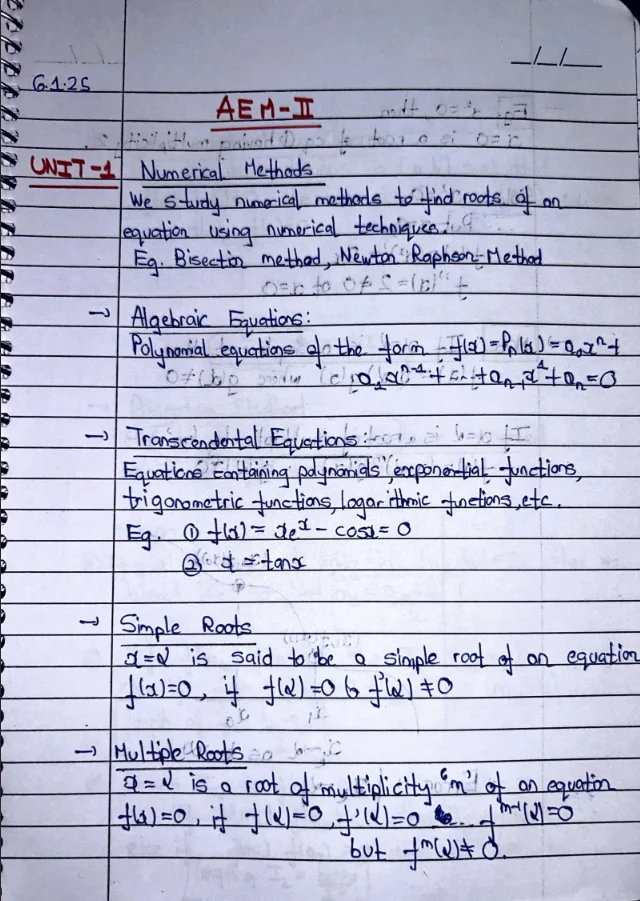 __/__/__
6.1.25
AEM-II
UNIT-1 Numerical Methods
We study numerical methods to find roots of an
equation using numerical techniques.
Eg. Bisection method, Newton Raphson Method
→ Algebraic Equations:
Polynomial equations of the form f(x)=Pₙ(x)=a₀xⁿ+
a₁xⁿ⁻¹+...+aₙ₋₁x¹+aₙ=0
→ Transcendental Equations:
Equations containing polynomials, exponential functions,
trigonometric functions, logarithmic functions, etc.
Eg. ① f(x) = xeˣ - cosx = 0
② x = tanx
→ Simple Roots
x=α is said to be a simple root of an equation
f(x)=0, if f(α)=0 & f'(α) ≠0
→ Multiple Roots
x=α is a root of multiplicity 'm' of an equation
f(x)=0, if f(α)=0, f'(α)=0 ... fᵐ⁻¹(α)=0
but fᵐ(α)≠0.